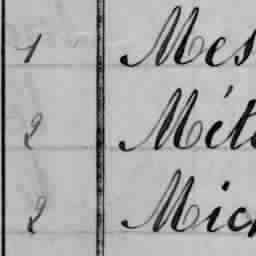 1 Mes
2 Mét
2 Mic